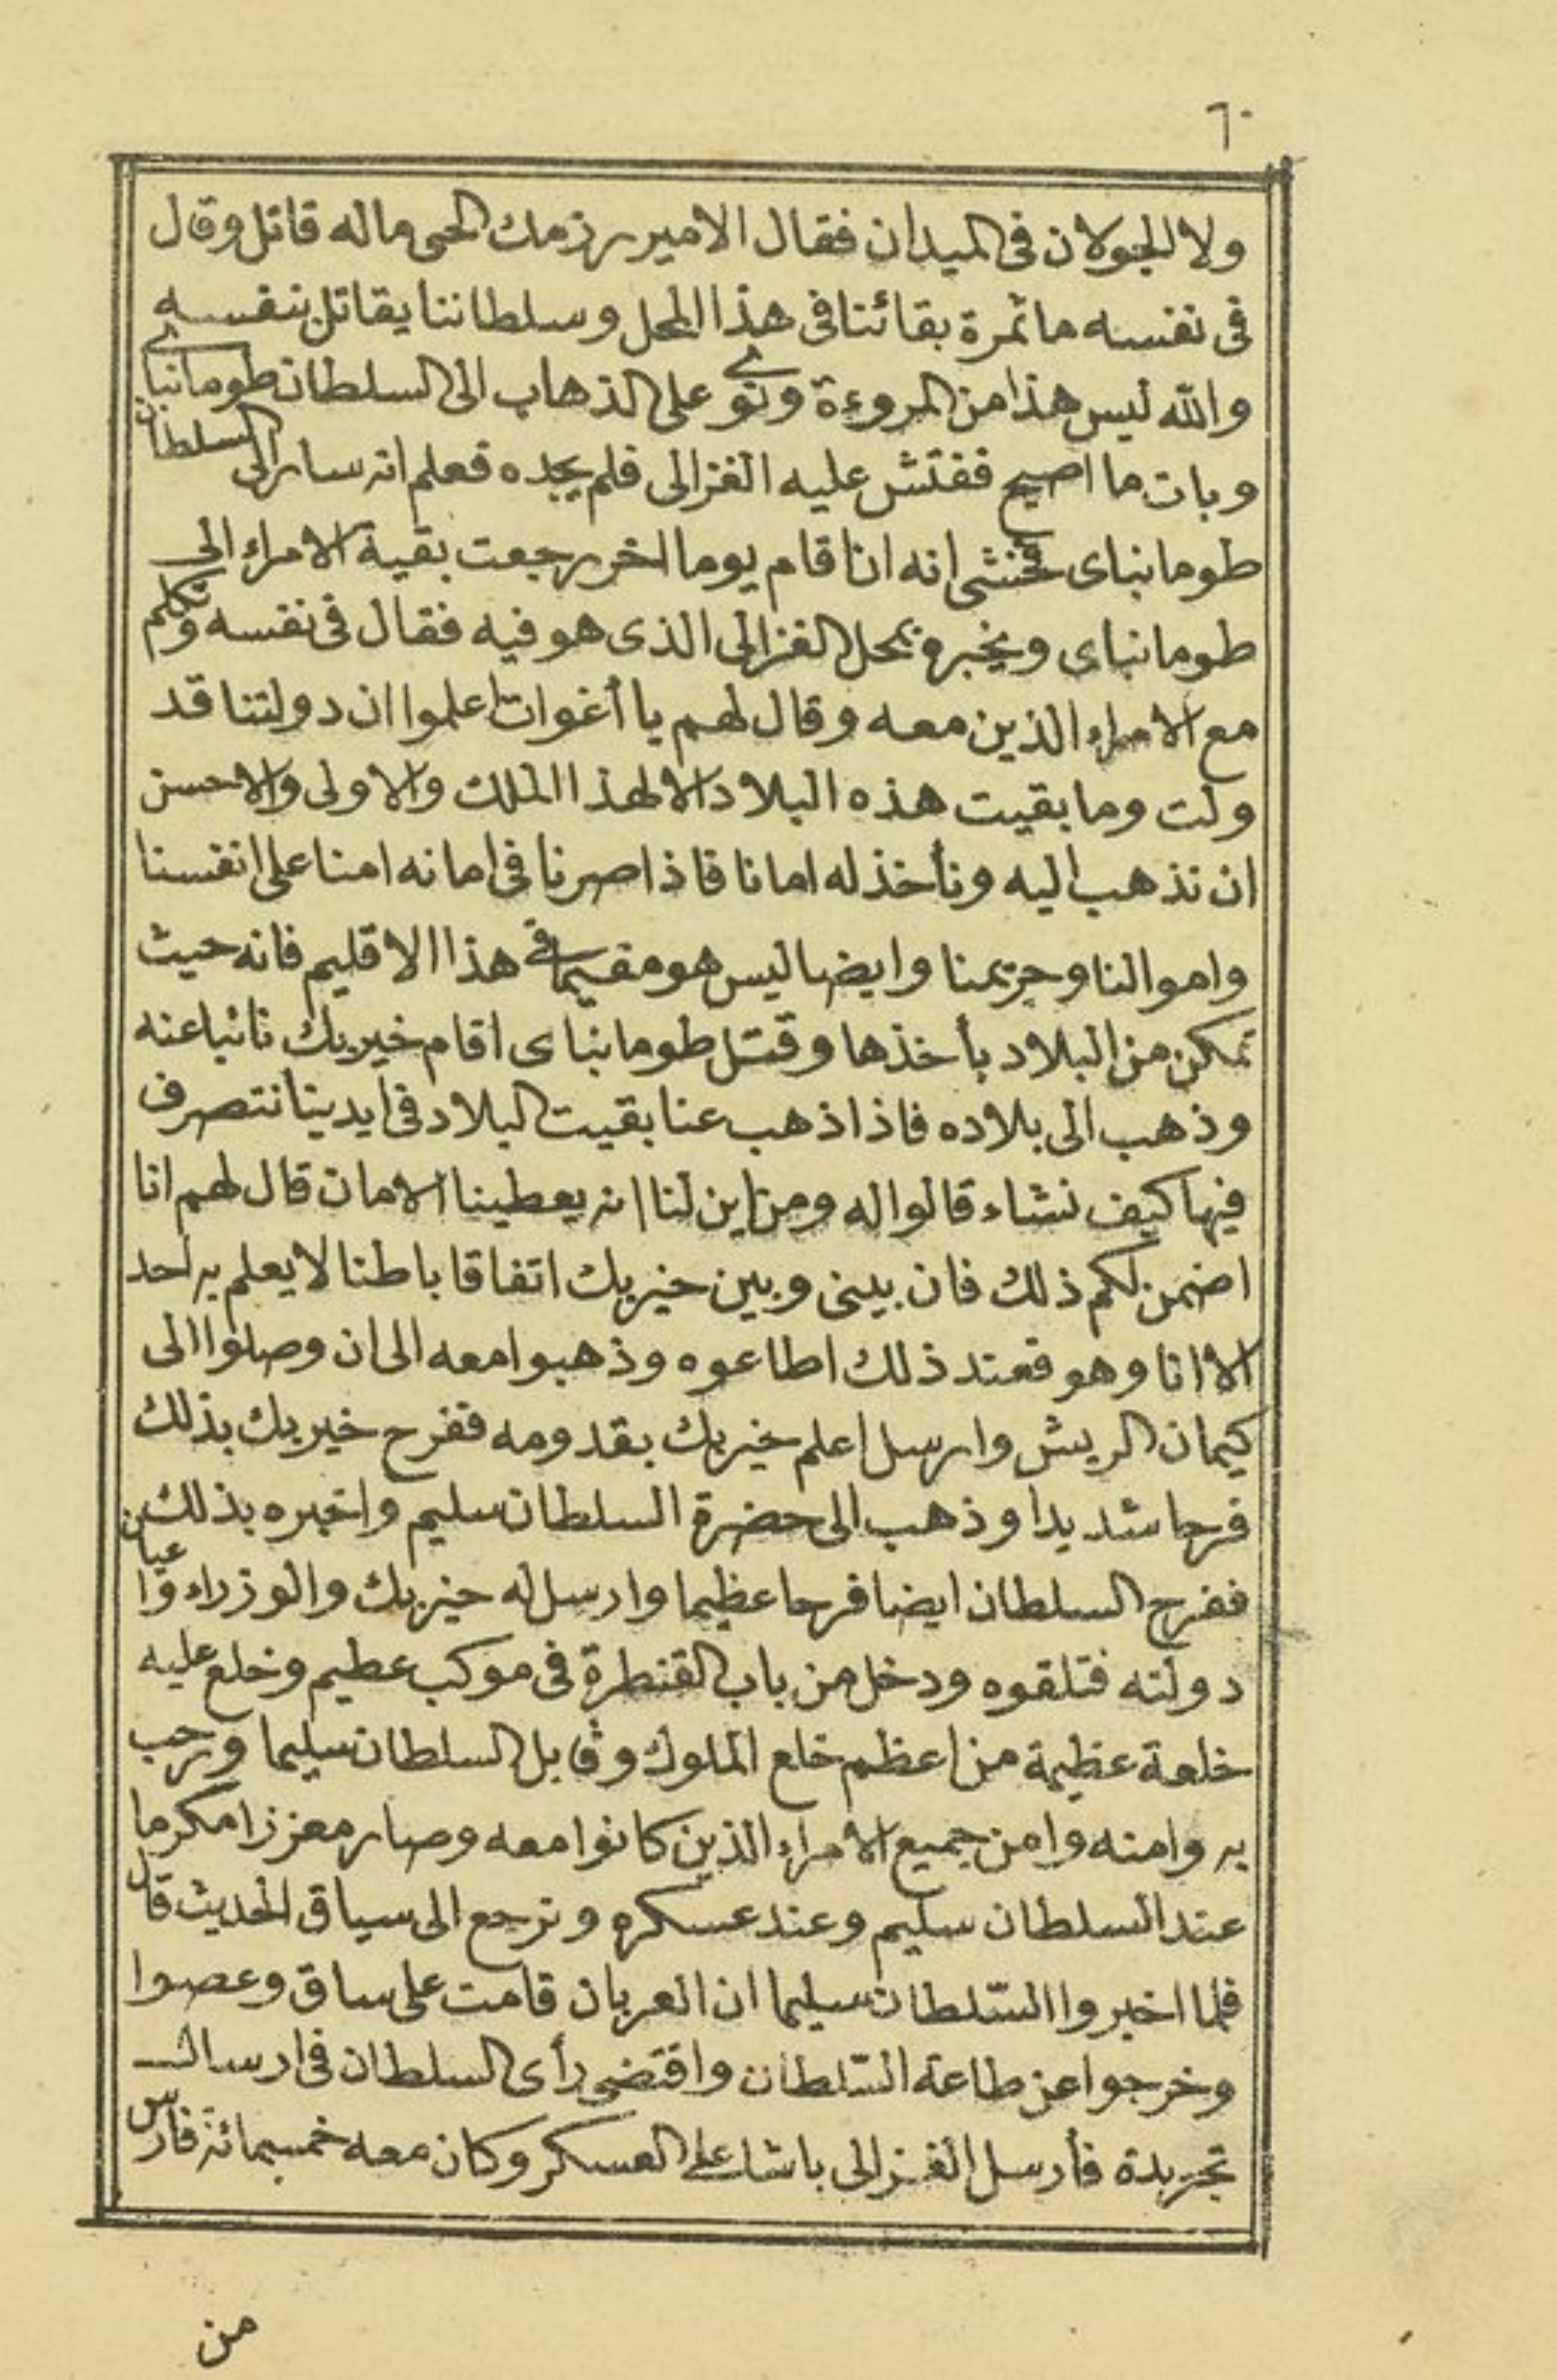 ٦٠
ولا للجولان فى الميدان فقال الامير رزمك الحى ماله قاتل وقال
فى نفسه ما ثمرة بقائنا فى هذا المحل وسلطاننا يقاتل بنفسه
والله ليس هذا من المروءة ونوى على الذهاب الى السلطان طومانباى
وبات ما اصبح ففتش عليه الغزالى فلم يجده فعلم انه سار الى السلطان
طومانباى فخشى انه ان اقام يوما اخر رجعت بقية الامراء الى
طومانباى ويخبره بمحل الغزالى الذى هو فيه فقال فى نفسه وتكلم
مع الامراء الذين معه وقال لهم يا أغوات اعلموا ان دولتنا قد
ولت وما بقيت هذه البلاد الا لهذا الملك والاولى والاحسن
ان نذهب اليه ونأخذ له امانا فاذا صرنا فى امانه امنا على انفسنا
واموالنا وحريمنا وايضا ليس هو مقيما فى هذا الاقليم فانه حيث
تمكن من البلاد بأخذها وقتل طومانباى اقام خيربك نائبا عنه
وذهب الى بلاده فاذا ذهب عنا بقيت البلاد فى ايدينا نتصرف
فيها كيف نشاء قالوا له ومن اين لنا انه يعطينا الامان قال لهم انا
اضمن لكم ذلك فان بينى وبين خيربك اتفاقا باطنا لا يعلم به احد
الا انا وهو فعند ذلك اطاعوه وذهبوا معه الى ان وصلوا الى
كيمان الريش وارسل اعلم خيربك بقدومه ففرح خيربك بذلك
فرحا شديدا وذهب الى حضرة السلطان سليم واخبره بذلك
ففرح السلطان ايضا فرحا عظيما وارسل له خيربك والوزراء واعيان
دولته فتلقوه ودخل من باب القنطرة فى موكب عظيم وخلع عليه
خلعة عظيمة من اعظم خلع الملوك وقابل السلطان سليما ورحب
به وامنه وامن جميع الامراء الذين كانوا معه وصار معززا مكرما
عند السلطان سليم وعند عسكره ونرجع الى سياق الحديث قال
فلما اخبروا السّلطان سليما ان العربان قامت على ساق وعصوا
وخرجوا عن طاعة السّلطان واقتضى رأى السلطان فى ارسال
تجريدة فأرسل الغزالى باشا على العسكر وكان معه خمسمائة فارس
من